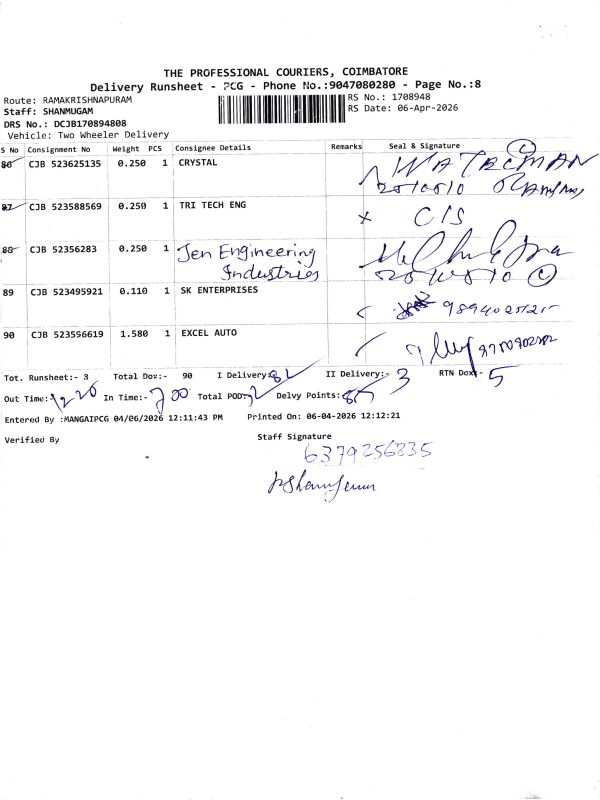 THE PROFESSIONAL COURIERS, COIMBATORE
Delivery Runsheet - PCG - Phone No.:9047080280 - Page No.:8
Route: RAMAKRISHNAPURAM
RS No.: 1708948
Staff: SHANMUGAM
RS Date: 06-Apr-2026
DRS No.: DCJB170894808
Vehicle: Two Wheeler Delivery
S No Consignment No Weight PCS Consignee Details Remarks Seal & Signature
86 CJB 523625135 0.250 1 CRYSTAL WATERMAN
87 CJB 523588569 0.250 1 TRI TECH ENG C/S
88 CJB 52356283 0.250 1 Jen Engineering
Industries
89 CJB 523495921 0.110 1 SK ENTERPRISES
90 CJB 523596619 1.580 1 EXCEL AUTO
Tot. Runsheet:- 3 Total Dox:- 90 I Delivery:- 82 II Delivery:- 3 RTN Dox:- 5
Out Time:- 12 20 In Time:- 7 00 Total POD:- Delvy Points:-
Entered By :MANGAIPCG 04/06/2026 12:11:43 PM Printed On: 06-04-2026 12:12:21
Verified By Staff Signature
6379256835